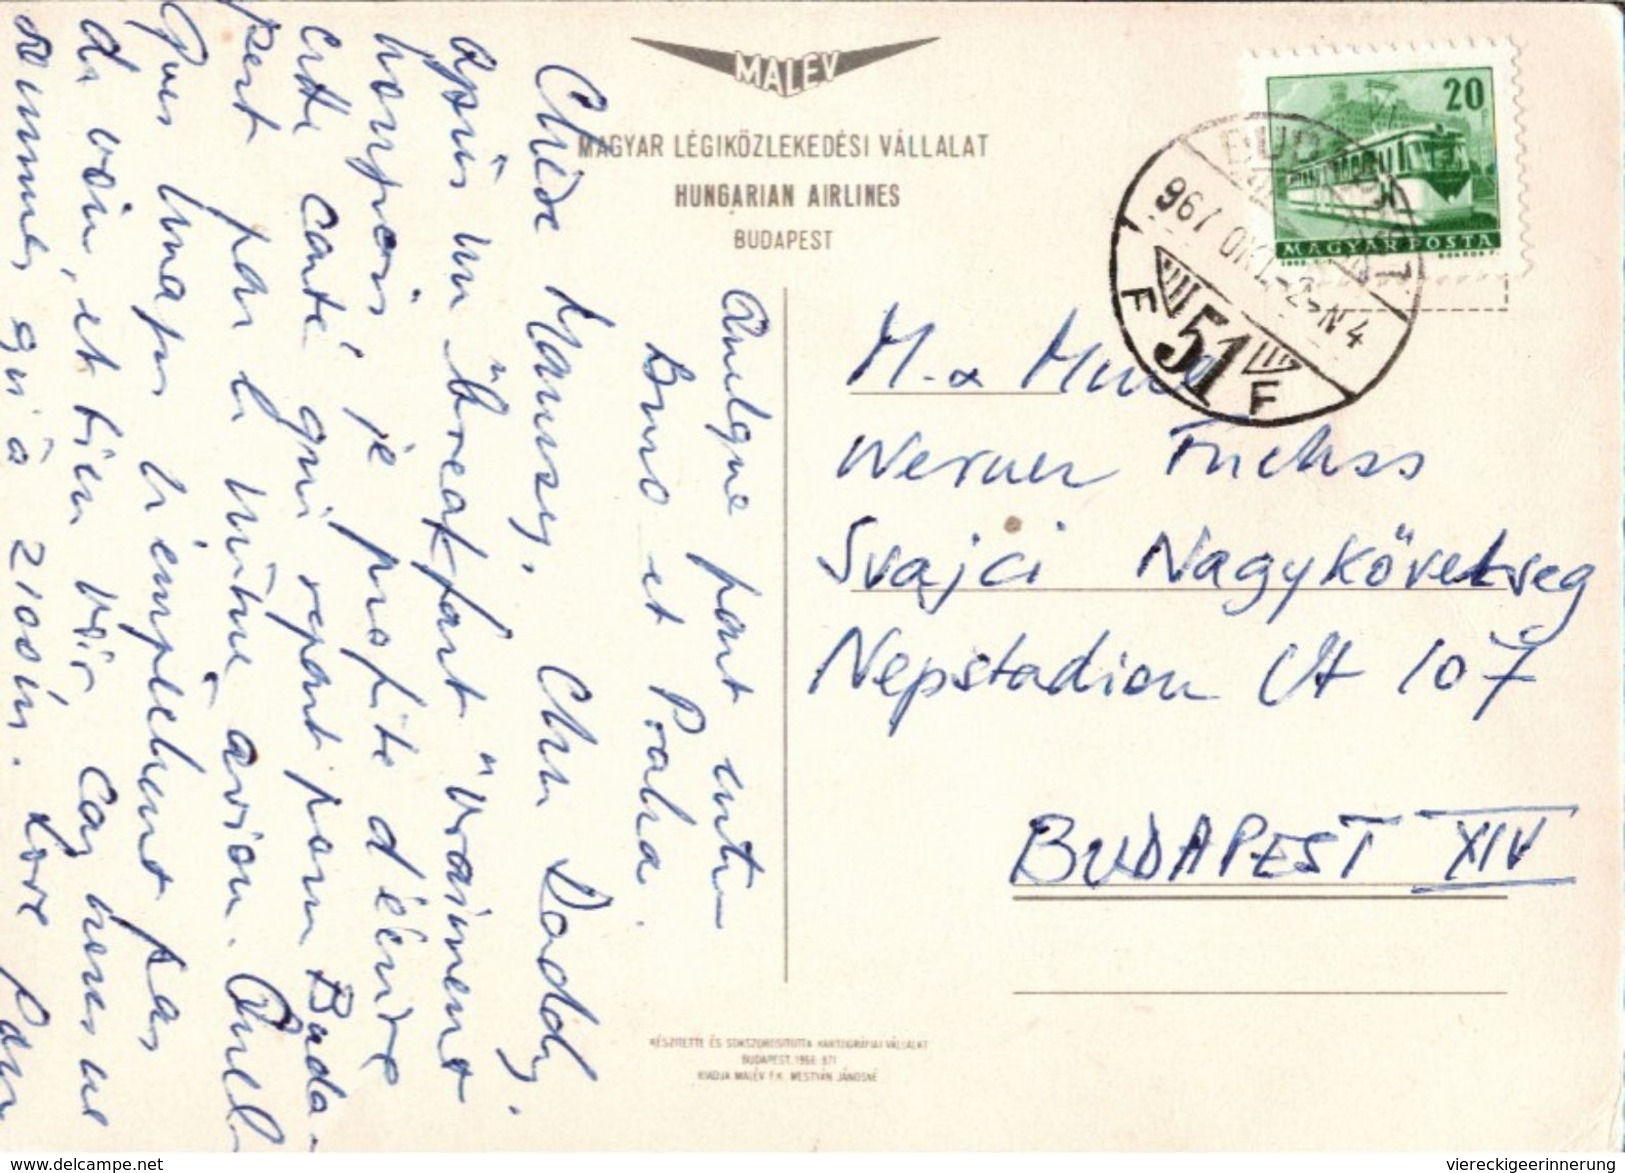 MALÉV
MAGYAR LÉGIKÖZLEKEDÉSI VÁLLALAT
HUNGARIAN AIRLINES
BUDAPEST
20
MAGYAR POSTA
BUDAPEST
967 OKT.-2-N 4
F 51 F
Quelque part entre
Brno et Praha.
Chère Mamsy, Cher Daddy,
Après un "breakfast" vraiment
hongrois je profite d'écrire
cette carte qui repart pour Buda-
pest par le même avion.
Quel
pas
da voir, et bien voir
et Love
M. & Mme
Werner Fuchss
Svajci Nagykövetseg
Nepstadion Ut 107
BUDAPEST XIV
KÉSZITETTE ÉS SOKSZOROSITOTTA KARTOGRÁFIAI VÁLLALAT
BUDAPEST, 1966. 871
KIADJA MALÉV F.K. MESTYÁN JÁNOSNÉ
delcampe.net
viereckigeerinnerung